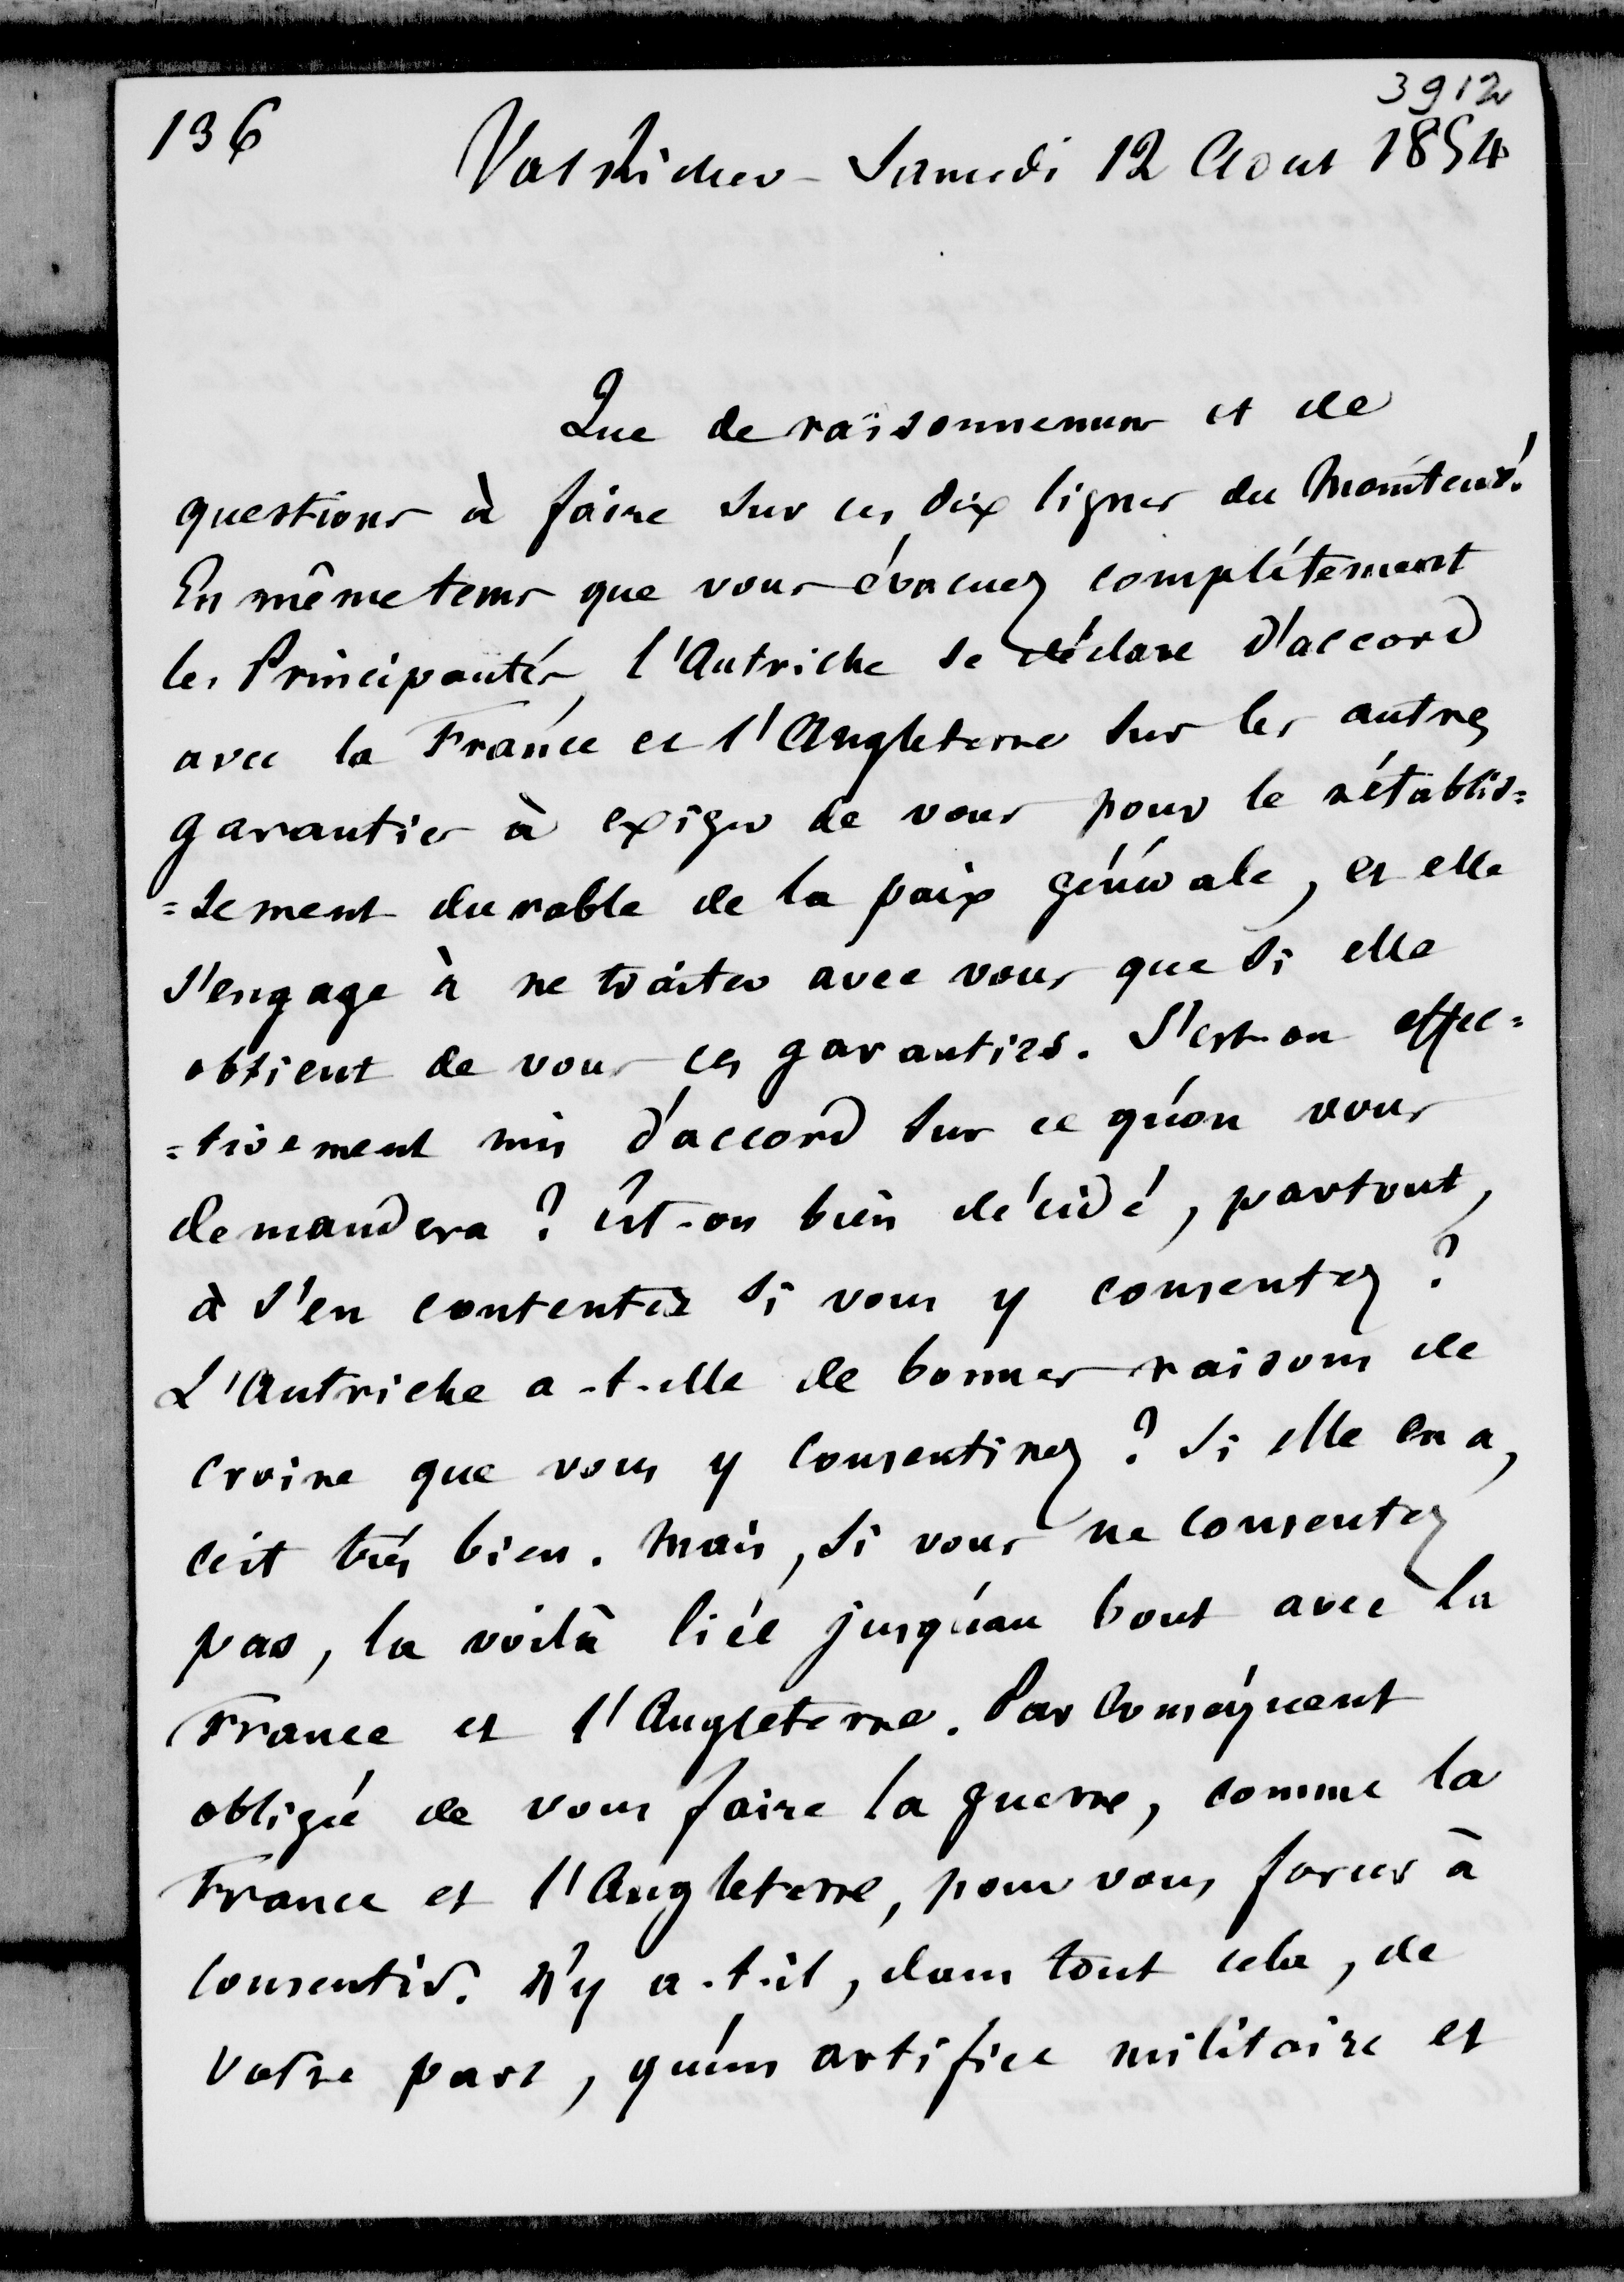 3912
136
Val Richer - Samedi 12 Aout 1854
Que de raisonnemens et de
questions à faire sur ces dix lignes du Moniteur !
En même tems que vous évacuez complétement
les Principautés, l'Autriche se déclare d'accord
avec la France et l'Angleterre sur les autres
garanties à exiger de vous pour le rétablis=
=sement durable de la paix générale, et elle
s'engage à ne traiter avec vous que si elle
obtient de vous ces garanties. S'est-on effec=
=tivement mis d'accord sur ce qu'on vous
demandera ? Est-on bien décidé, partout,
à s'en contenter si vous y consentez ?
L'Autriche a-t-elle de bonnes raisons de
croire que vous y consentirez ? Si elle en a,
c'est très bien. Mais, si vous ne consentez
pas, la voilà liée jusqu'au bout avec la
France et l'Angleterre. Par conséquent
obligée de vous faire la guerre, comme la
France et l'Angleterre, pour vous forcer à
consentir. N'y a-t-il, dans tout cela, de
votre part, qu'un artifice militaire et